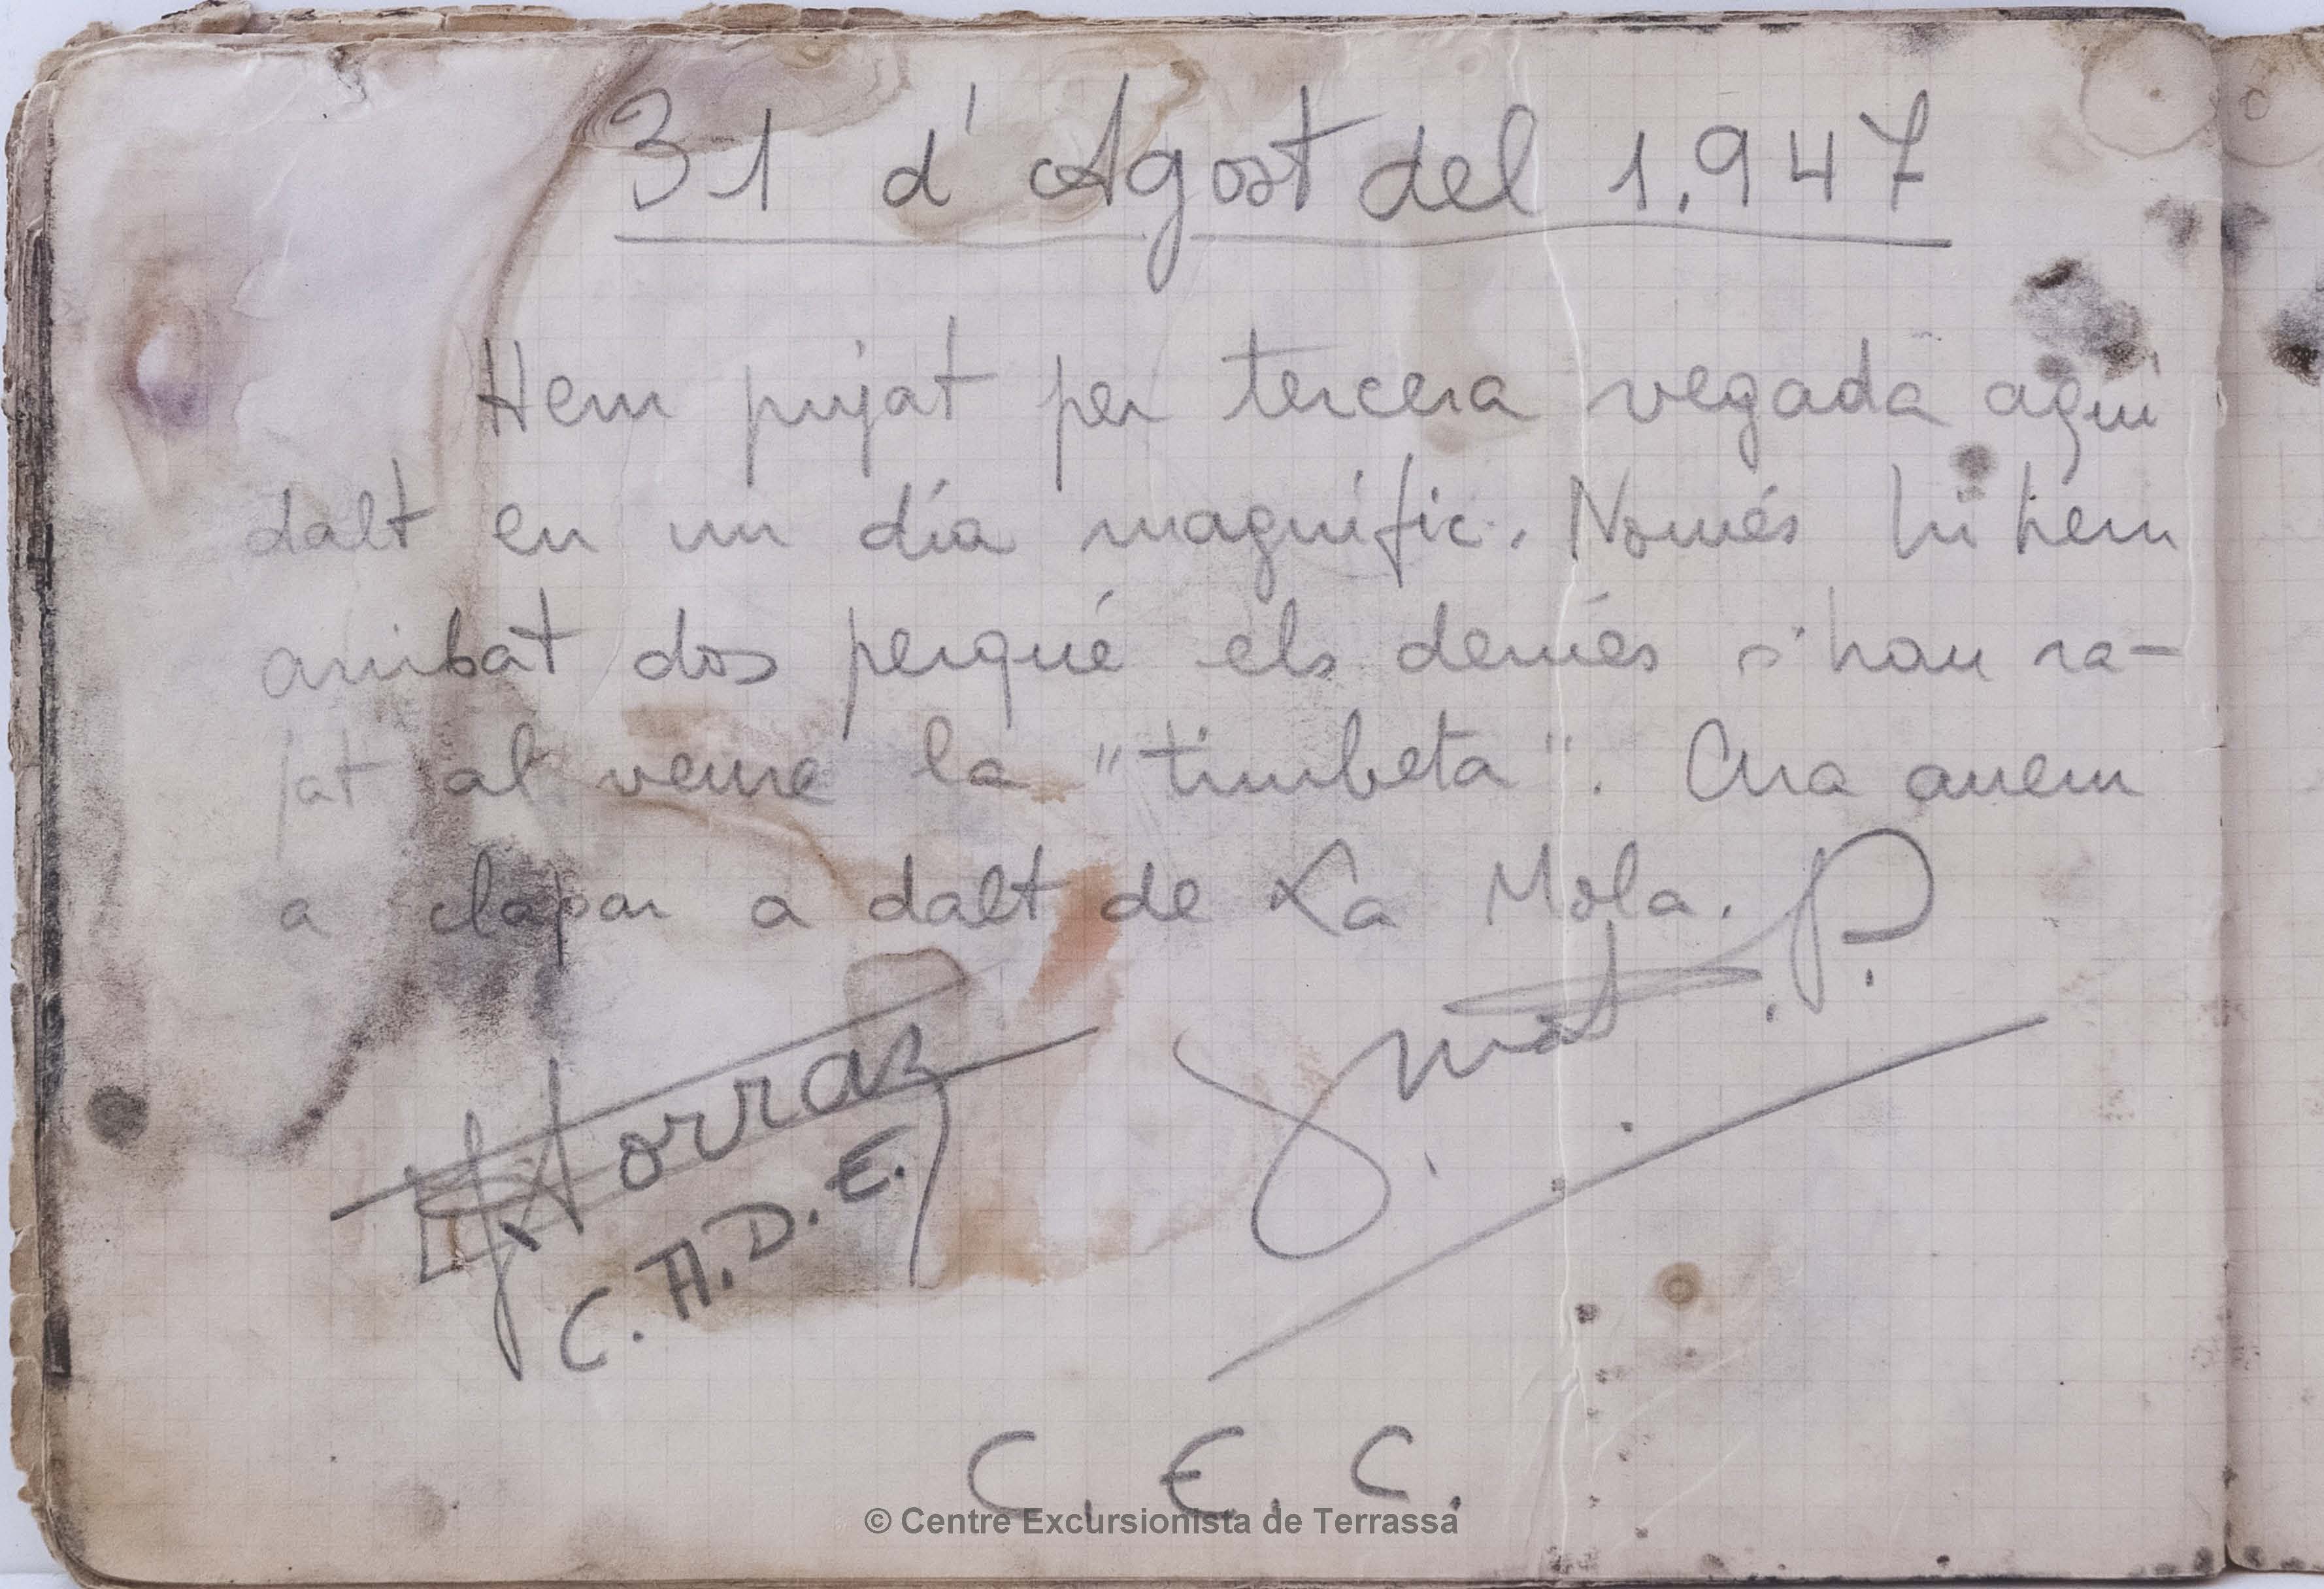 31 d'Agost del 1.947
Hem pujat per tercera vegada aquí
dalt en un día magnífic. Només hi hem
arribat dos perqué els demés s'han ra-
jat al veure la "timbeta". Ara anem
a clapar a dalt de La Mola.
P.
C.A.D.E.
C. E. C.
© Centre Excursionista de Terrassa